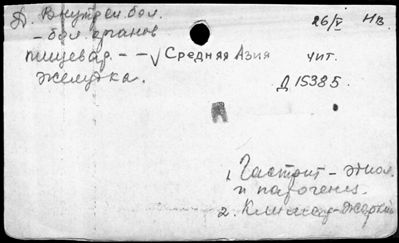 Д. Внутрен. бол.
26/V Нв.
- бол. органов
пищевар. - - √ Средняя Азия чит.
желудка.
Д 15385
1. Гастрит - этиол.
и патогенез.
2. Климат - жаркий